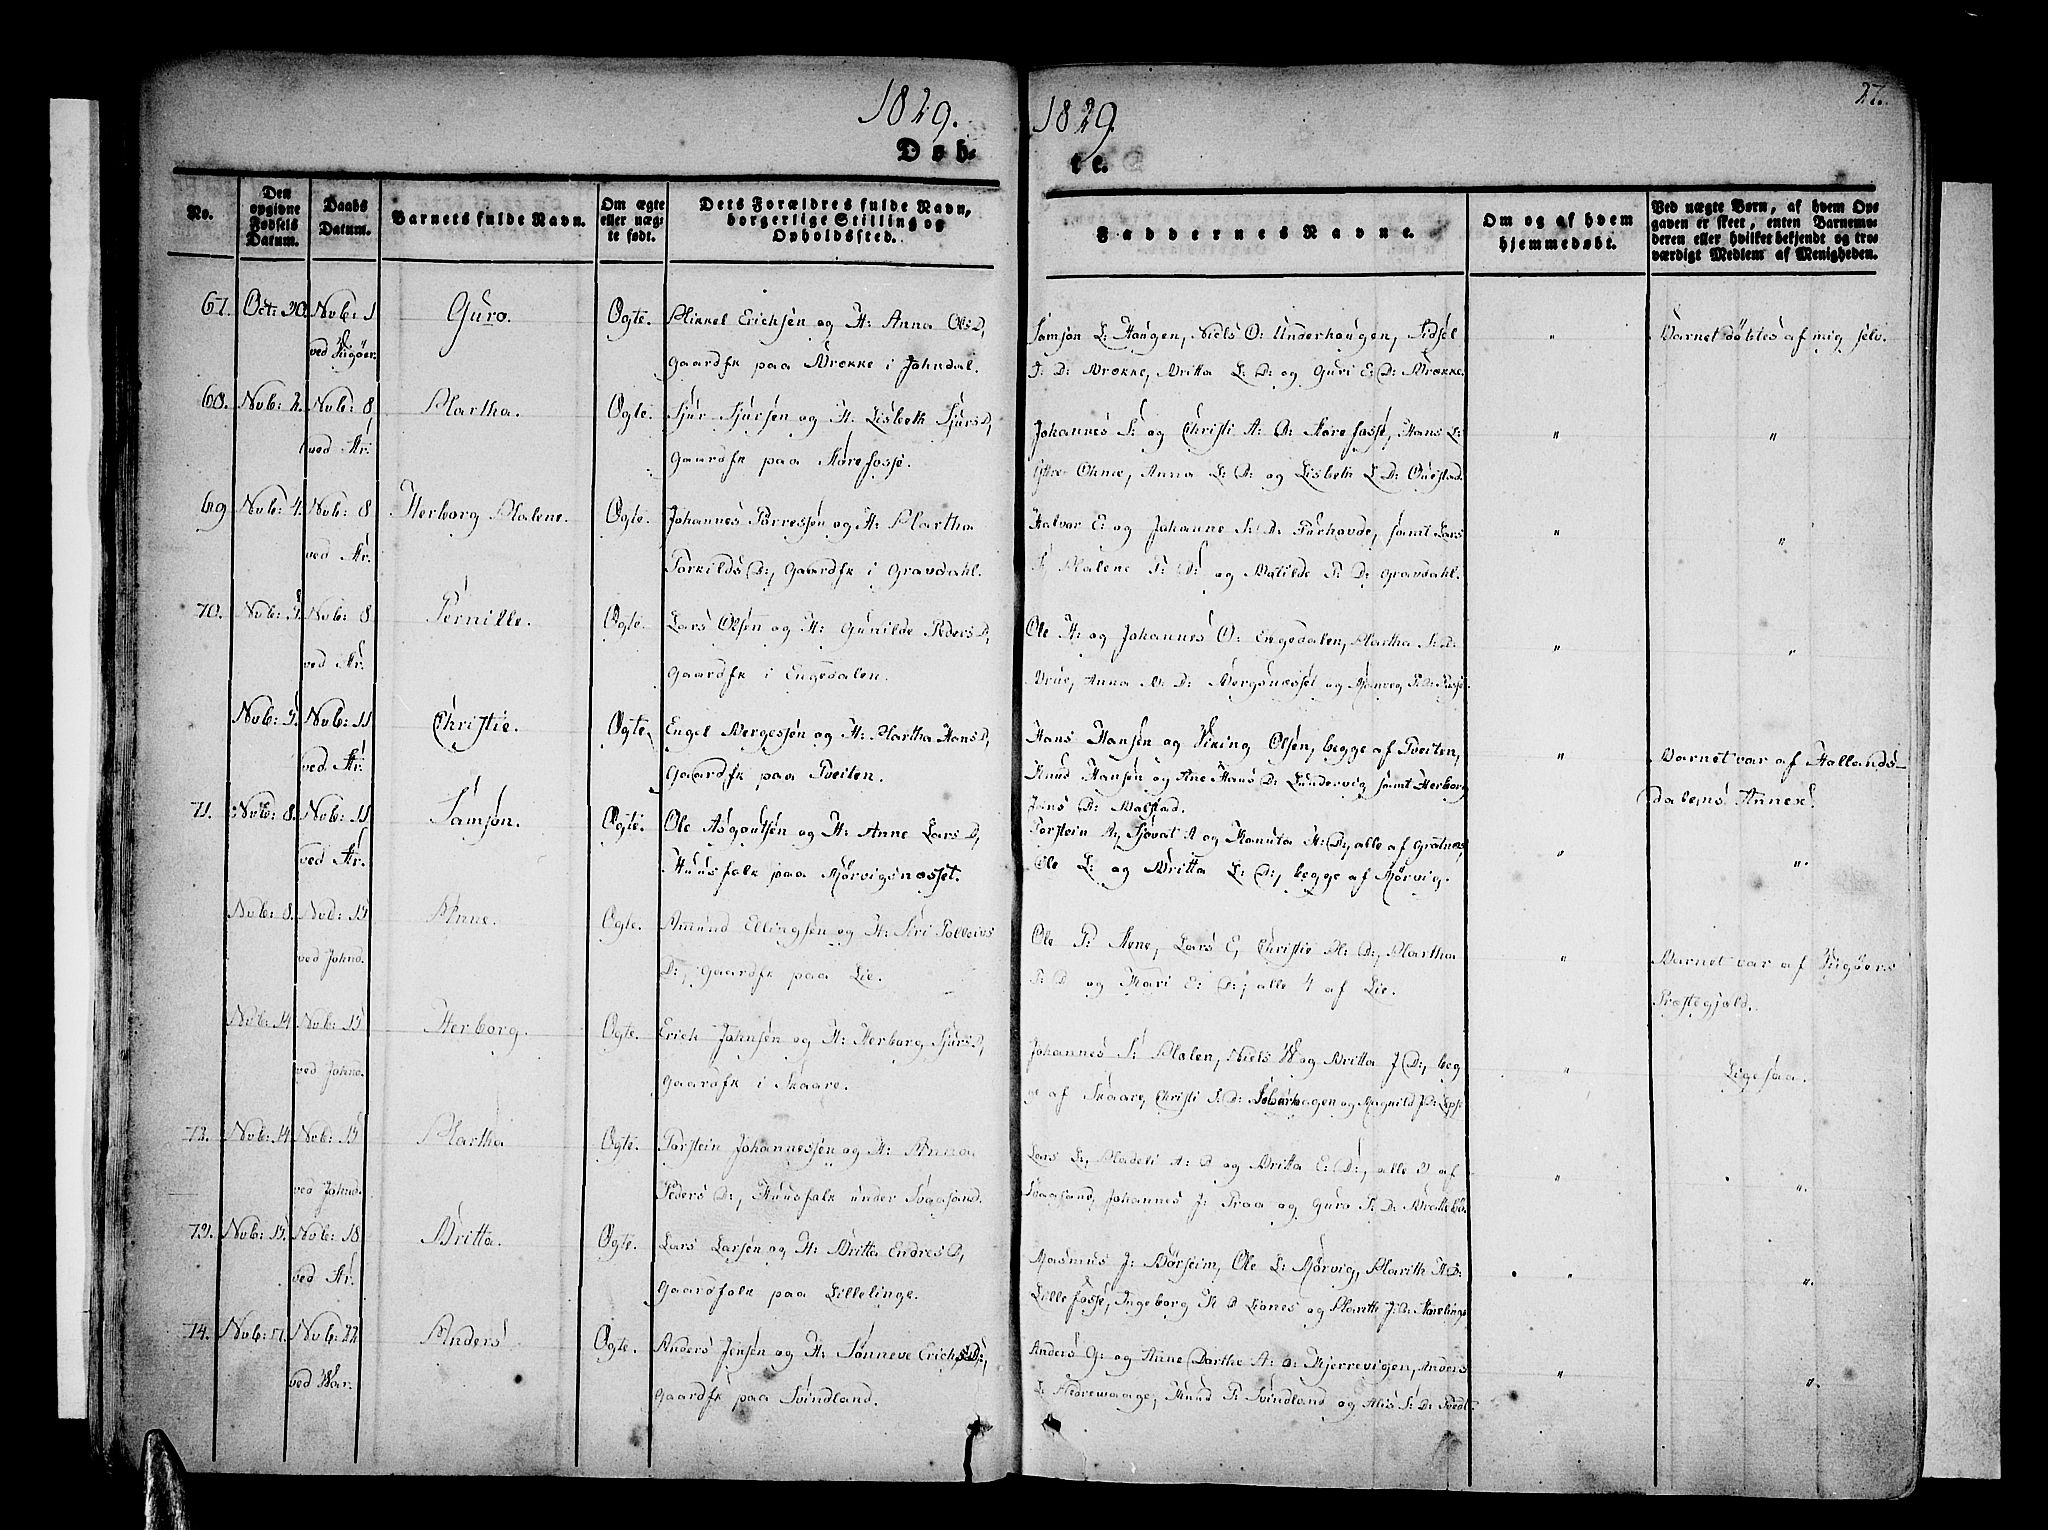 1829.
1829.
27.
Døb-
te.
No.
Den opgivne Fødsels Datum.
Daabs Datum.
Barnets fulde Navn.
Om ægte eller uægte født.
Dets Forældres fulde Navn, borgerlige Stilling og Opholdssted.
Faddernes Navne.
Om og af hvem hjemmedøbt.
Ved uægte Børn, af hvem Opgaven er skeet, enten Barnemoderen eller hvilket bekjendt og troværdigt Medlem af Menigheden.
67. Oct: 20. Nvb: 1 Guro. Ægte. Mikkel Ericksen og H: Anna OlsD,
ved
Gaardfk paa Brekke i Johndal.
Samson L: Haugen, Niels O: Underhaugen, Sidsel
D: Brekke, Britta L: D: og Guri E: D: Brekke.
" Barnet døbtes af mig selv.
68. Nvb: 2. Nvb: 8 Martha. Ægte. Sjur Sjursen og H. Lisbeth SjursD,
ved Str.
Gaardfk paa Storefosse.
Johannes S: og Christi A: D: Storefosse, Hans L:
Anna L: D: og Lisbeth L D:
" "
69 Nvb: 4. Nvb: 8 Herborg Malene. Ægte. Johannes Torressen og H: Martha
ved Str.
TorkildsD:, Gaardfk i Gravdahl.
Halvor E: og Johanne S: D: Furhovde, samt Lars
Malene T: D: og Matilde T: D: Gravdahl.
" "
70. Nvb: 5. Nvb: 8 Pernille. Ægte. Lars Olsen og H: Gunilde PedersD,
ved Str.
Gaardfk i Engedalen.
Ole H: og Johannes O: Engedalen, Martha S: D:
Anna D: Bergsnesset og
" "
Nvb: 5. Nvb: 11 Christie. Ægte. Engel Bergessen og H: Martha HansD,
ved Str.
Gaardfk paa Tveiten.
Hans Hansen og Viking Olsen, begge af Tveiten,
Knud Hansen og Ane Hans D: Lundervig samt Herborg
Jens D: Malstad.
" Barnet var af Hallands-
dalens Annex.
71. Nvb: 8. Nvb: 11 Samson. Ægte. Ole Asgoutsen og H: Anne LarsD,
ved Str.
Huusfolk paa Mørvigsnesset.
Torstein A, Sjovat A og Kanuta H: D:, alle af
Ole L: og Britta L: D:, begge af Mørvig.
" "
Nvb: 8. Nvb: 15 Anne. Ægte. Amund Ellingsen og H: Siri
ved Johnd.
D:, Gaardfk paa Lie.
Ole T: Stene, Lars E, Christie M: D:, Martha
T: D og Kari E: D:, alle 4 af Lie.
" Barnet var af
Præstegjeld.
Nvb: 14 Nvb: 15 Herborg. Ægte. Erick Johnsen og H: Herborg SjursD,
ved Johnd.
Gaardfk i Skaare.
Johannes S: Malen, Niels og Britta J D:, beg
ge af Skaare, Christi S: D: og Ragnild
" Ligesaa.
72. Nvb: 14. Nvb: 15 Martha Ægte. Torstein Johannessen og H: Anna
ved Johnd.
Peders D:, Huusfolk under Svaasand.
Lars L:, Madeli A: D og Britta E: D:, alle 3 af
Svaasand, Johannes J: Traa og Guro S: D:
" "
73. Nvb: 15. Nvb: 18 Britta. Ægte. Lars Larsen og H: Britta EndresD,
ved Str.
Gaardfolk paa Lillelinge.
Rasmus J: Børseim, Ole L: Mørvig, Marith H D:
Lillefosse, Ingeborg K D Lianes og Marith J: D: Storelinge
" "
74. Nvb: 17. Nvb: 22 Anders Ægte. Anders Jensen og H: Sønneve ErichsD:,
ved Var.
Gaardfk paa Svindland.
Anders G: og Anne Dorthe A: D: Kjerrevigen, Anders
L: Nedrevaage, Knud T: Svindland og Alis S: D:
" "